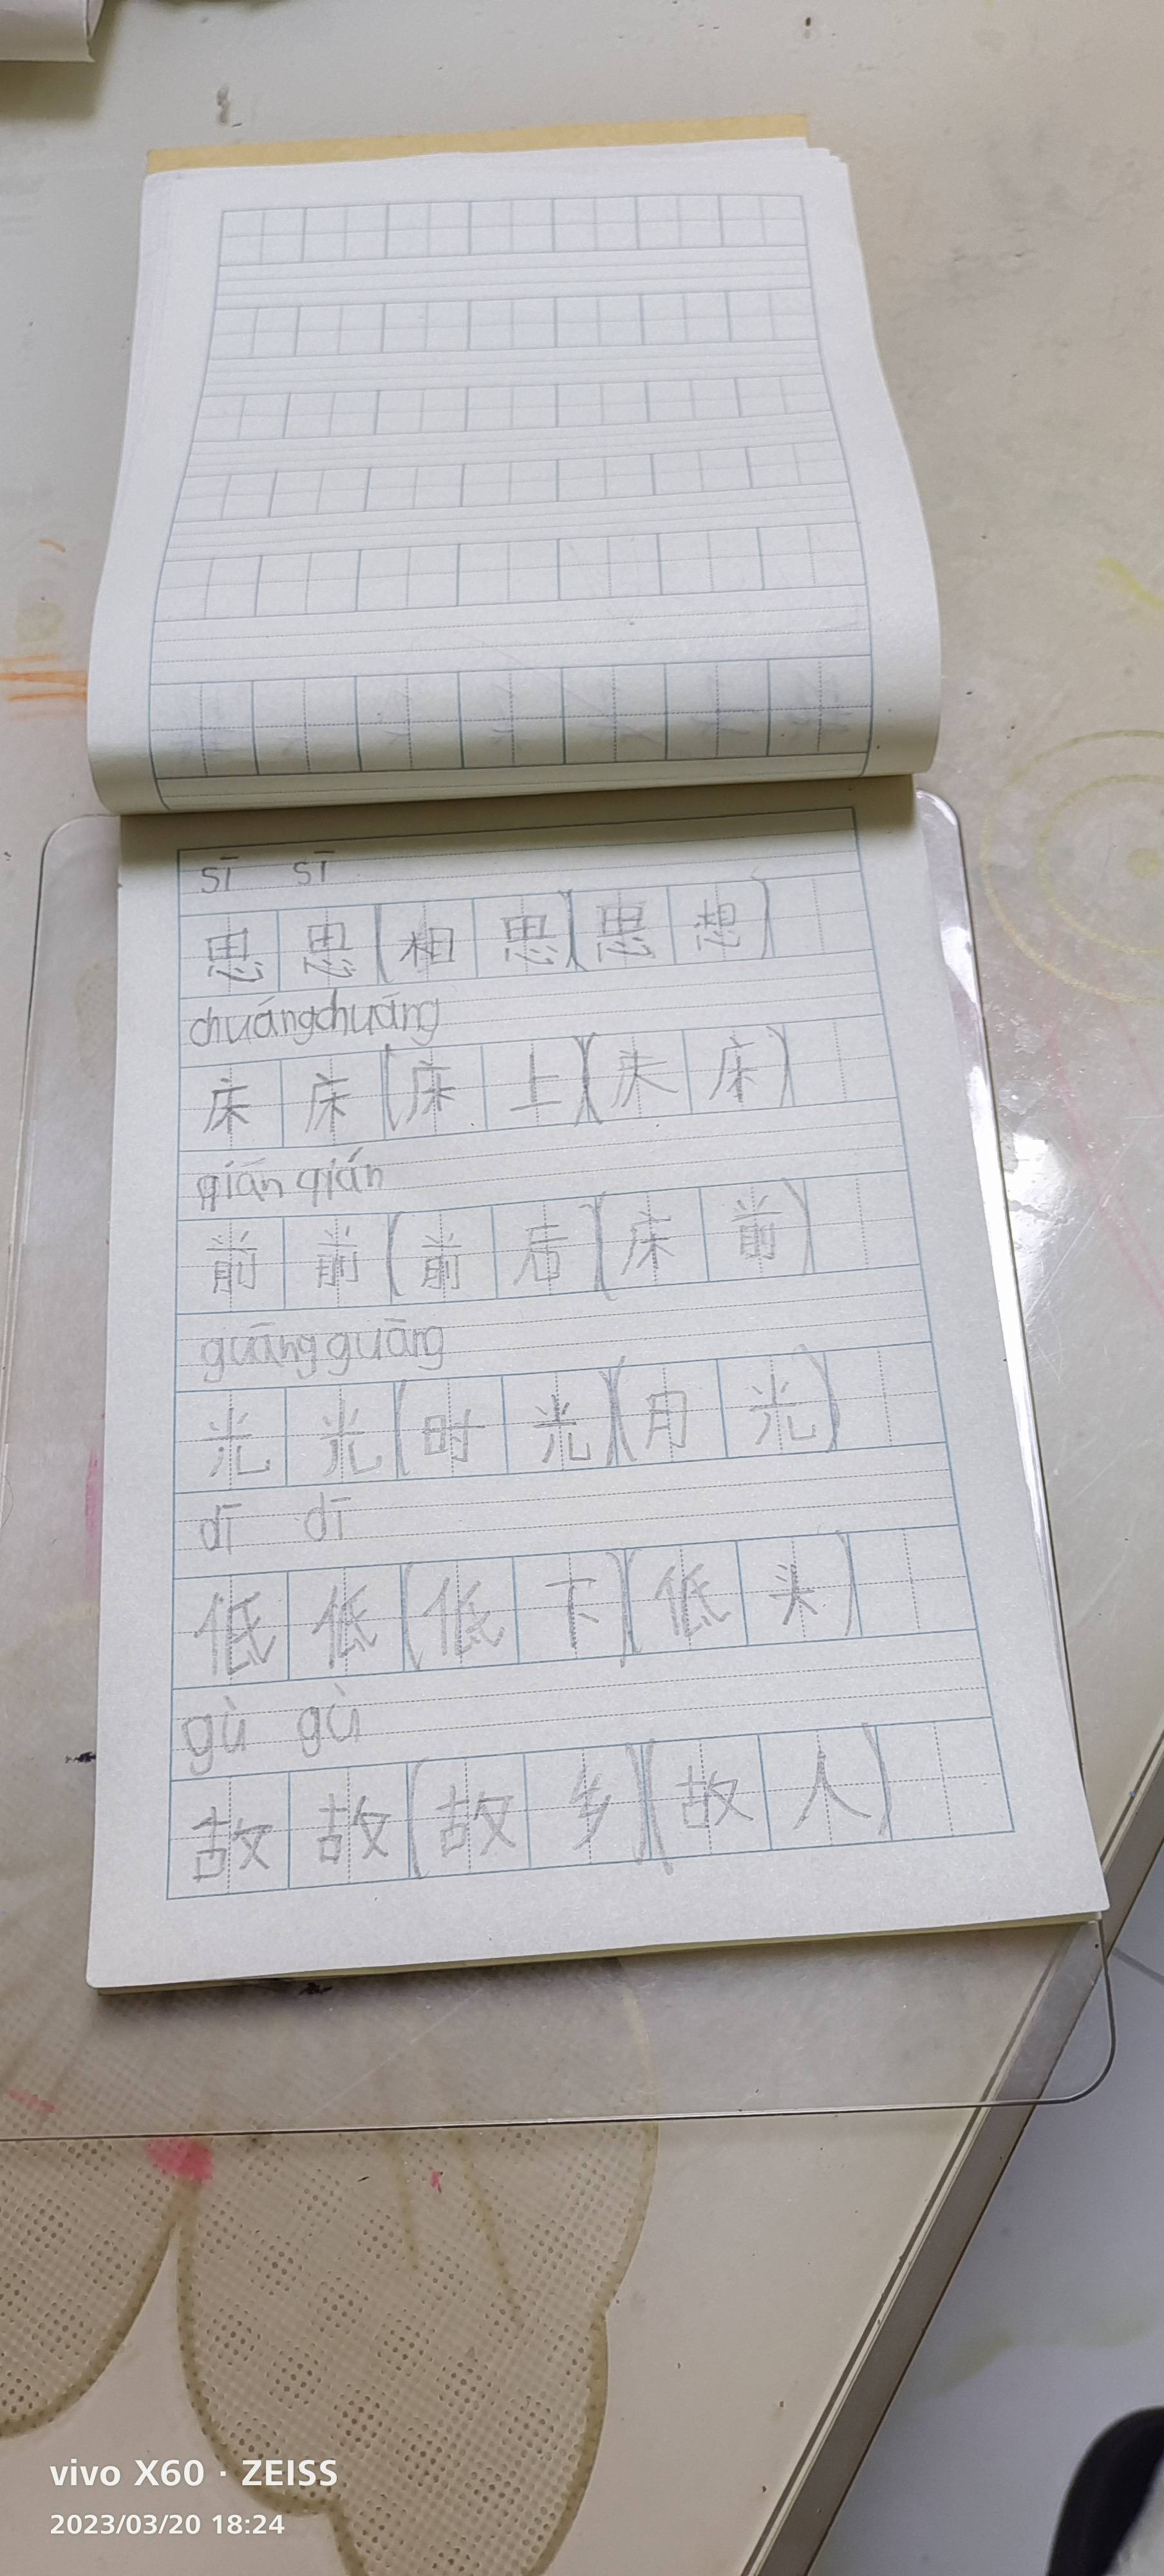 sī sī
思思(相思)(思想)
chuáng chuáng
床床(床上)(失床)
qián qián
前前(前后)(床前)
guāng guāng
光光(时光)(月光)
dī dī
低低(低下)(低头)
gù gù
故故(故乡)(故人)
vivo X60 · ZEISS
2023/03/20 18:24